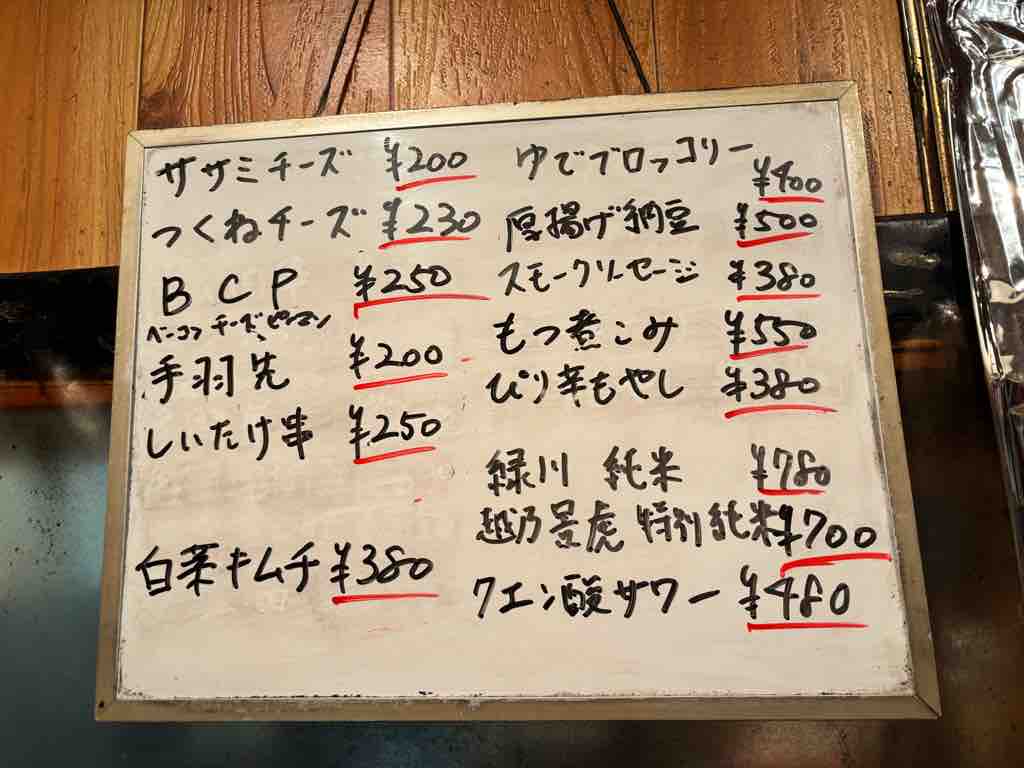 ササミチーズ ¥200
つくねチーズ ¥230
BCP ¥250
ベーコンチーズピーマン
手羽先 ¥200
しいたけ串 ¥250
白菜キムチ ¥380
ゆでブロッコリー
¥400
厚揚げ納豆 ¥500
スモークソーセージ ¥380
もつ煮こみ ¥550
ぴり辛もやし ¥380
緑川 純米 ¥780
越乃景虎 特別純米 ¥700
クエン酸サワー ¥480